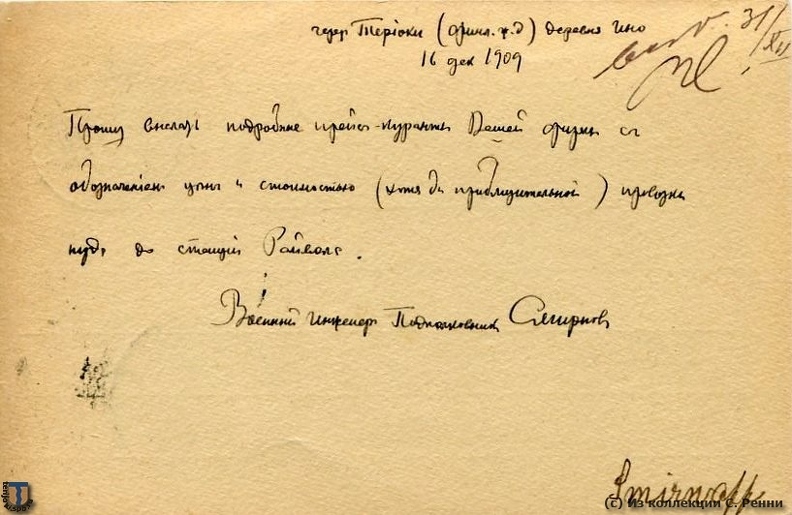 через Терiоки (финл. ж. д) деревня Ино
31/XII
16 дек 1909
Прошу выслать подробные прейс-куранты Вашей фирмы съ
обозначенiем цены и стоимостью (хотя бы приблизительной) провоза
пуда до станцiи Райвола.
Военный Инженеръ Подполковник Смирнов
Smirnoff
(c) Из коллекции С. Ренни
terijoki
spb.ru